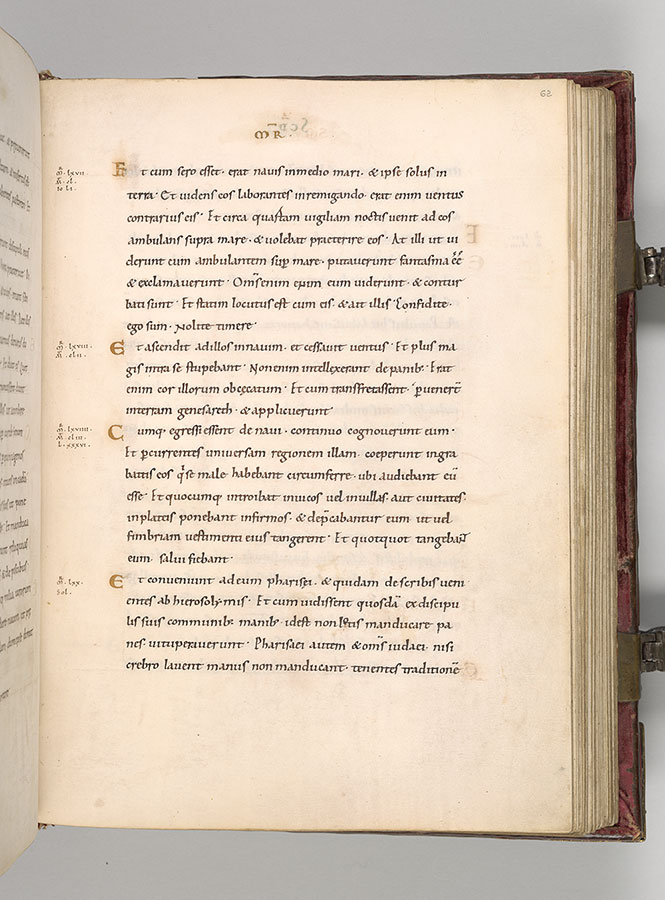 62
MR.
Et cum sero esset · erat nauis inmedio mari · & ipse solus in
terra · Et uidens eos laborantes inremigando · erat enim uentus
contrarius eis · Et circa quartam uigiliam noctis uenit ad eos
ambulans supra mare · & uolebat praeterire eos · At illi ut ui
derunt eum ambulantem sup̄ mare · putauerunt fantasma ēē
& exclamauerunt · Om̄s enim eum uiderunt · & contur
bati sunt · Et statim locutus est cum eis · & ait illis · Confidite ·
ego sum · Nolite timere ·
m̄. lxviii.
m̄. clii.
Et ascendit adillos innauim · et cessauit uentus · Et plus ma
gis intra se stupebant · Non enim intellexerant de panib; · Erat
enim cor illorum obcęcatum · Et cum transfretassent · puenerт̄
interram genesareth · & applicuerunt ·
m̄. lxviiii.
m̄. cliii.
l. xxxvi.
Cumq; egressi essent de naui · continuo cognouerunt eum ·
Et pcurrentes uniuersam regionem illam · coeperunt ingra
battis eos q̄ se male habebant circumferre · ubi audiebant eū
esse · Et quocumq; introibat inuicos uel inuillas aut ciuitates ·
inplateis ponebant infirmos · & dep̄cabantur eum ut uel
fimbriam uestimenti eius tangerent · Et quotquot tangebant
eum · salui fiebant ·
m̄. lxx.
sol.
Et conueniunt ad eum pharisei · & quidam de scribis ueni
entes ab hierosolymis · Et cum uidissent quosdā ex discipu
lis suis communib; manib; · idest non lotis manducare pa
nes uituperauerunt · Pharisaei autem & om̄s iudaei · nisi
crebro lauent manus non manducant · tenentes traditionē